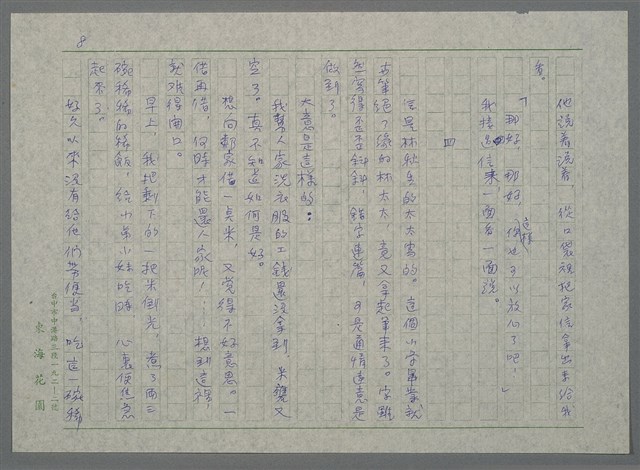 8
他説着説着，從口袋裡把家信拿出來給我
看。
「那好，那好，這樣你也可以放心了吧！」
我接過信來一面看一面説。
四
信是林秋生的太太寫的。這個小学畢業就
与筆絕了緣的林太太，竟又拿起筆來了。字雖
然寫得歪歪斜斜，錯字連篇，可是通情達意是
做到了。
大意是這樣的：
我幫人家洗衣服的工錢還沒拿到，米甕又
空了。真不知道如何是好。
想向鄰家借一点米，又覚得不好意思。一
借再借，何時才能還人家呢！……想到這裡，
就难得開口。
早上，我把剩下的一把米倒光，煮了两三
碗稀稀的稀飯，給小弟小妹吃時，心裏便焦急
起來了。
好久以來沒有給他們帶便當，吃這一碗稀
台中市中港路三段一九二之二號
東海花園